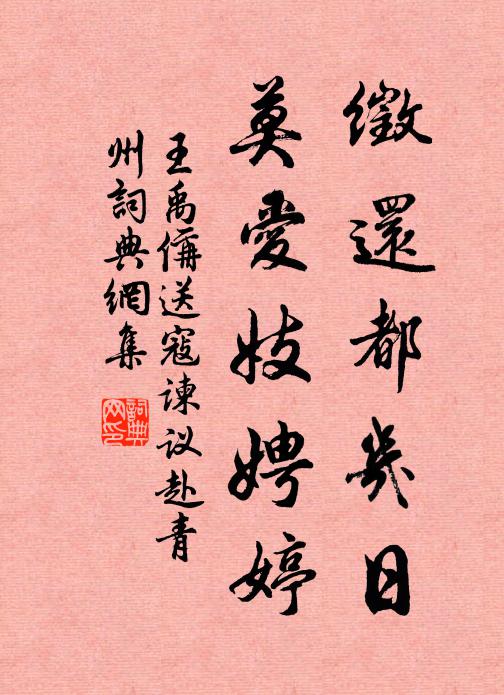 徵還都幾日
莫愛妓娉婷
王禹偁送寇諫议赴青
州詞典網集
詞典
网印